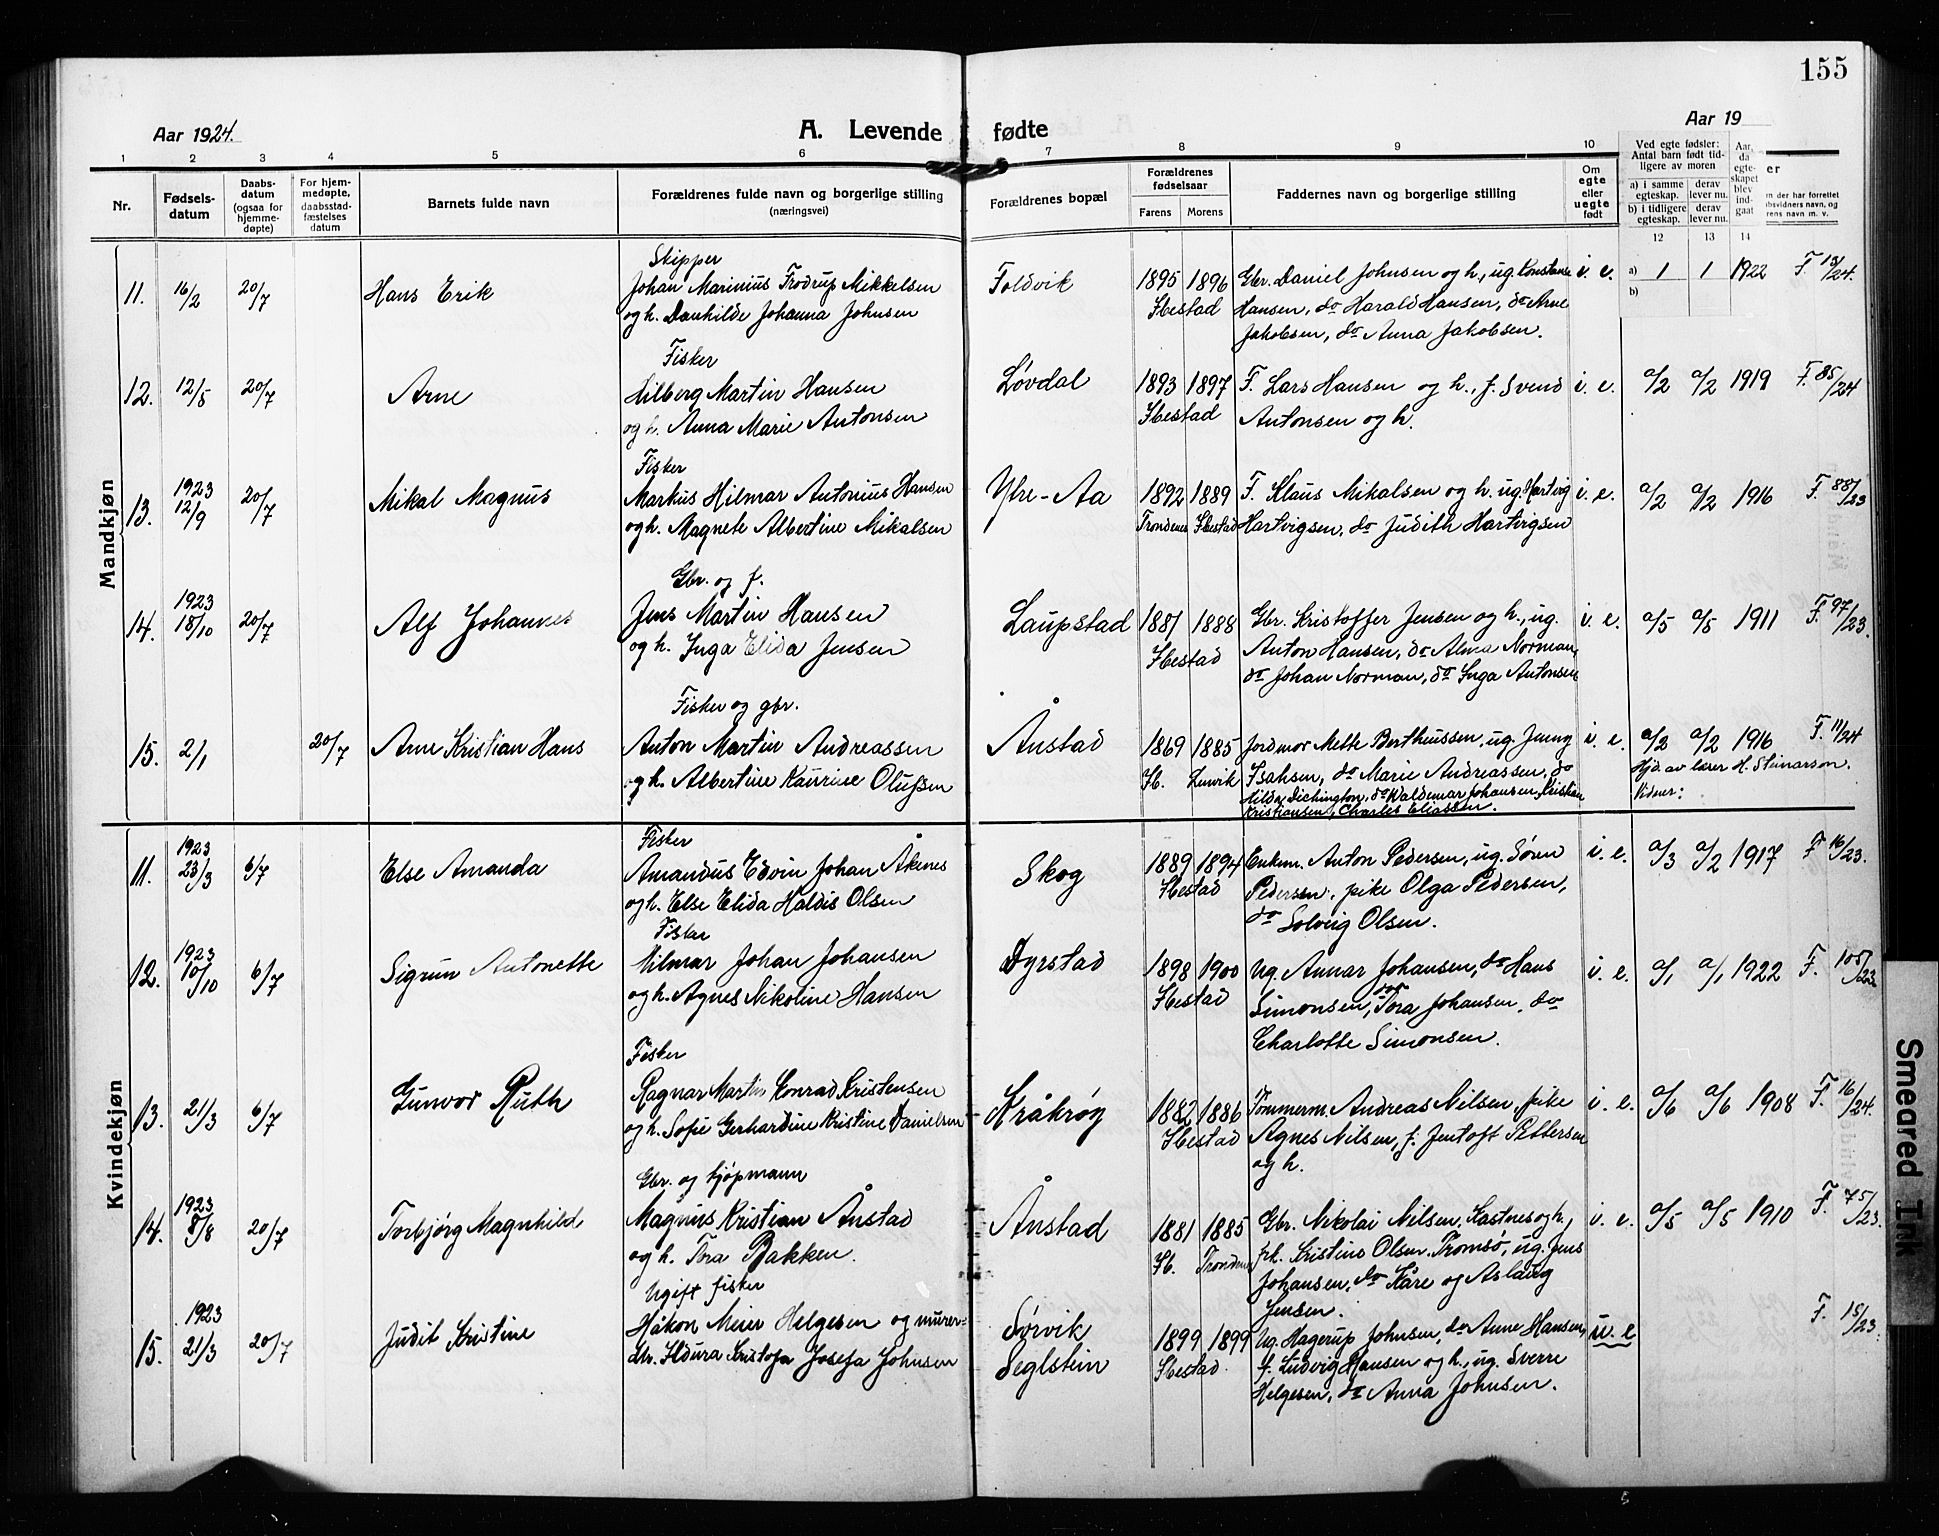 155
Aar 1924.
A. Levende fødte
Aar 19
1 2 3 4 5 6 7 8 9 10
Nr.
Fødsels-
datum
Daabs-
datum
(ogsaa for
hjemme-
døpte)
For hjem-
medøpte,
daabsstad-
fæstelses
datum
Barnets fulde navn
Forældrenes fulde navn og borgerlige stilling
(næringsvei)
Forældrenes bopæl
Forældrenes
fødselsaar
Farens Morens
Faddernes navn og borgerlige stilling
Om
egte
eller
uegte
født
Ved egte fødsler:
Antal barn født tid-
ligere av moren
a) i samme
egteskap.
derav
lever nu.
b) i tidligere
egteskap.
derav
lever nu.
Aar,
da
egte-
skapet
blev
ind-
gaat
er
n der har forrettet
bsvidners navn, og
rens navn m. v.
12 13 14
Mandkjøn
11. 16/2 20/7 Hans Erik
Skipper
Johan Marinius Frodrup Mikkelsen
og h. Danhilde Johanna Johnsen
Foldvik
1895 1896
Ibestad
Gbr. Daniel Johnsen og h., ug. Konstanse
Hansen, do Harald Hansen, do Arne
Jakobsen, do Anna Jakobsen.
i. e. a) 1 1 1922
b)
12. 12/5 20/7 Arne
Fisker
Hilberg Martin Hansen
og h. Anna Marie Antonsen
Løvdal
1893 1897
Ibestad
F. Lars Hansen og h., f. Svend
Antonsen og h.
i. e. a/2 a/2 1919 F. 85/24
13. 1923 12/9 20/7 Mikal Magnus
Fisker
Markus Hilmar Antonius Hansen
og h. Magnete Albertine Mikalsen
Ytre-Aa
1892 1889
Trondenes Ibestad
F. Klaus Mikalsen og h. ug. Hartvig
Hartvigsen, do Judith Hartvigsen
i. e. a/2 a/2 1916 F. 88/23
14. 1923 18/10 20/7 Alf Johannes
Gbr. og f.
Jens Martin Hansen
og h. Inga Elida Jensen
Laupstad
1881 1888
Ibestad
Gbr. Kristoffer Jensen og h., ug.
Anton Hansen, do Alma Norman,
do Johan Norman, do Inga Antonsen
i. e. a/5 a/5 1911 F. 97/23.
15. 2/1 20/7 Arne Kristian Hans
Fisker og gbr.
Anton Martin Andreassen
og h. Albertine Kaurine Olufsen
Ånstad
1869 1885
Ib. Lenvik
Jordmor Mette Bertheussen, ug. Jenny
Isaksen, do Marie Andreassen, do
Hilda Dichington, do Waldemar Johansen, Kristian
Kristiansen, Charles Eliassen.
i. e. a/2 a/2 1916 F. 11/24
Hjd. av lærer H. Steinarson.
Vidner:
Kvindekjøn
11. 1923 23/3 6/7 Else Amanda
Fisker
Amandus Edvin Johan Åkenes
og h. Else Elida Haldis Olsen
Skog
1889 1894
Ibestad
Enkem. Anton Pedersen, ug. Søren
Pedersen, pike Olga Pedersen,
do Solveig Olsen.
i. e. a/3 a/2 1917 F 16/23.
12. 1923 10/10 6/7 Sigrun Antonette
Fisker
Hilmar Johan Johansen
og h. Agnes Nikoline Hansen
Dyrstad
1898 1900
Ibestad
Ug. Annar Johansen, do Hans
Simonsen, do Tora Johansen, do
Charlotte Simonsen.
i. e. a/1 a/1 1922 F. 105/23
13. 21/3 6/7 Gunvor Ruth
Fisker
Ragnar Martin Konrad Kristensen
og h. Sofie Gerhardine Kristine Danielsen
Kråkrøy
1882 1886
Ibestad
Tømmerm. Andreas Nilsen, pike
Agnes Nilsen, f. Jentoft Pettersen
og h.
i. e. a/6 a/6 1908 F. 16/24.
14. 1923 8/8 20/7 Torbjørg Magnhild
Gbr. og kjøpmann
Magnus Kristian Ånstad
og h. Tora Bakken.
Ånstad
1881 1885
Ib. Trondenes
Gbr. Nikolai Nilsen, Kastnes og h.,
frk. Kristine Olsen, Tromsø, ug. Jens
Johansen, do Kåre og Aslaug
Jensen.
i. e. a/5 a/5 1910 F. 75/23.
15. 1923 21/3 20/7 Judit Kristine
Ugift fisker
Håkon Meier Helgesen og murer-
dtr. Ildura Kristofa Josefa Johnsen
Sørvik
Seglstein
1899 1899
Ibestad.
Ug. Hagerup Johnsen, do Anne Hansen,
f. Ludvig Hansen og h., ug. Sverre
Helgesen, do Anna Johnsen.
u. e F. 15/23.
Smeared Ink